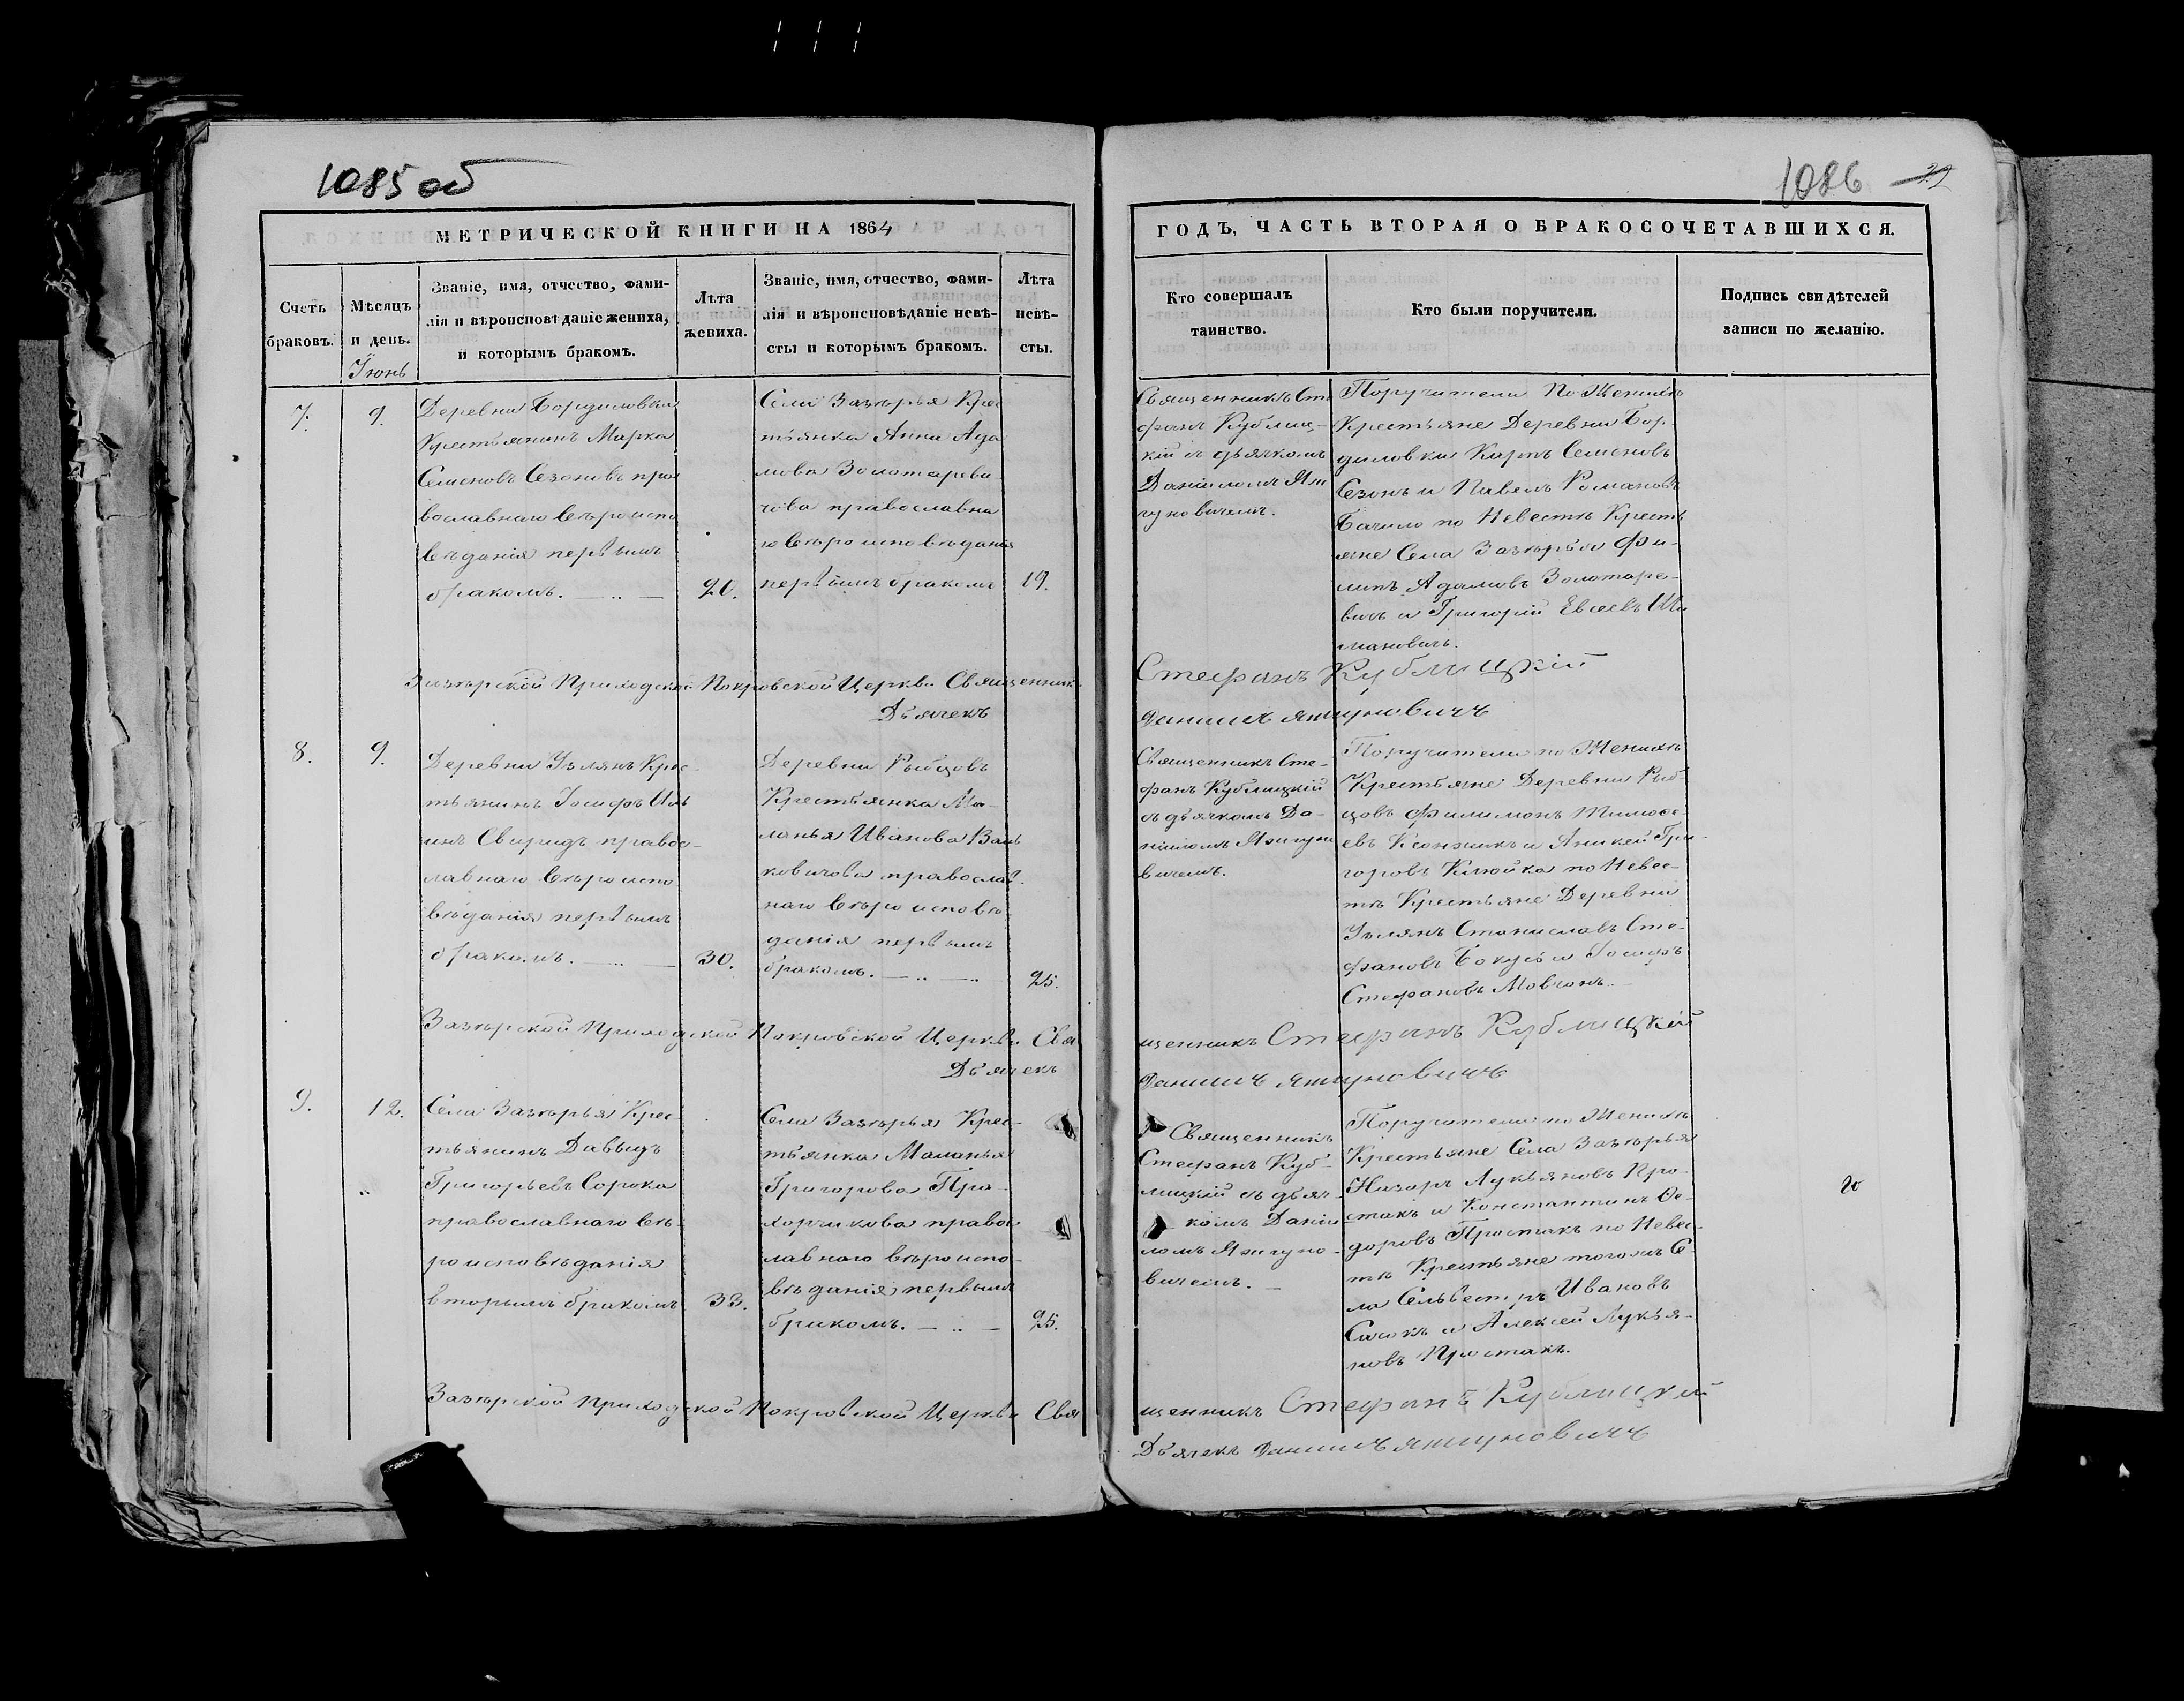 1085 об
МЕТРИЧЕСКОЙ КНИГИ НА 1864
Счетъ
браковъ.
Мѣсяцъ
и день.
Званіе, имя, отчество, фами-
лія и вѣроисповѣданіе жениха,
и которымъ бракомъ.
Лѣта
жениха.
Званіе, имя, отчество, фами-
лія и вѣроисповѣданіе невѣ-
сты и которымъ бракомъ.
Лѣта
невѣ-
сты.
Іюнь
7.
9.
Деревни Бордиловки
Крестьянинъ Марко
Семеновъ Сезоновъ пра
вославнаго вѣроиспо
вѣданія первымъ
бракомъ.
20.
Села Зазѣрья Крес
тьянка Анна Ада
мова Золотареви-
чова православна
го вѣроисповѣданія
первымъ бракомъ
19.
Зазѣрской Приходской Покровской Церкви Священникъ
Дьячекъ
8.
9.
Деревни Узлянъ Крес-
тьянинъ Іосифъ Иль
инъ Свиридъ правос-
лавнаго вѣроиспо
вѣданія первымъ
бракомъ.
30.
Деревни Рыбцовъ
Крестьянка Ма-
ланья Иванова Вань
ковичова православ.
наго вѣроисповѣ
данія первымъ
бракомъ.
25.
Зазѣрской Приходской Покровской Церкви Свя
Дьячекъ
9.
12.
Села Зазѣрья Крес-
тьянинъ Давыдъ
Григорьевъ Сорока
православнаго вѣ-
роисповѣданія
вторымъ бракомъ
33.
Села Зазѣрья Крес-
тьянка Маланья
Григорова Про-
хорчикова правос
лавнаго вѣроиспо-
вѣданія первымъ
бракомъ.
25.
Зазѣрской Приходской Покровской Церкви Свя
1086
22
ГОДЪ, ЧАСТЬ ВТОРАЯ О БРАКОСОЧЕТАВШИХСЯ.
Кто совершалъ
таинство.
Кто были поручители.
Подпись свидѣтелей
записи по желанію.
Священникъ Сте
фанъ Кублиц-
кій съ дьячкомъ
Даніиломъ
Поручители по Женихѣ
Крестьяне Деревни Бор
диловки Карпъ Семеновъ
Сезонъ и Павелъ Романовъ
Бачило по Невестѣ Кресть
яне Села Зазѣрья Фи-
липъ Адамовъ Золотаре-
вичъ и Григорій Евсеевъ Ши
мановичъ.
Стефанъ Кублицкій
Даниилъ
Священникъ Сте-
фанъ Кублицкій
съ дьячкомъ Да-
ніиломъ
вичемъ.
Поручители по Женихѣ
Крестьяне Деревни Рыб-
цовъ Филимонъ Тимофе-
евъ и Аникей Гри-
горовъ по Невес-
тѣ Крестьяне Деревни
Узлянъ Станиславъ Сте-
фановъ и Іосифъ
Стефановъ Мовчанъ.
щенникъ Стефанъ Кублицкій
Даниилъ
Священникъ
Стефанъ Куб-
лицкій съ дьяч-
комъ Даніи
ломъ
вичемъ.
Поручители по Женихѣ
Крестьяне Села Зазѣрья
Назаръ Лукьяновъ Про-
стакъ и Константинъ Фе-
доровъ Простакъ по Невес-
тѣ Крестьяне тогожъ Се
ла Сельвестръ Ивановъ
и Алексей Лукья-
новъ Простакъ.
щенникъ Стефанъ Кублицкій
Дьячекъ Даниилъ